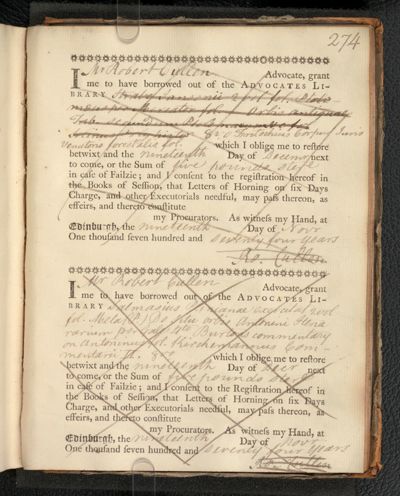 274
I Mr Robert Cullen Advocate, grant
me to have borrowed out of the ADVOCATES LI-
BRARY
Corpus Juris
forestalis fol. which I oblige me to restore
betwixt and the nineteenth Day of Decemr next
to come, or the Sum of five pounds ster
in case of Failzie; and I consent to the registration hereof in
the Books of Session, that Letters of Horning on six Days
Charge, and other Executorials needful, may pass thereon, as
effeirs, and thereto constitute
my Procurators. As witness my Hand, at
Edinburgh, the nineteenth Day of Novr
One thousand seven hundred and seventy four Years
Ro. Cullen
I Mr Robert Cullen Advocate, grant
me to have borrowed out of the ADVOCATES LI-
BRARY
fol.
4to Burtons commentary
on Antoninus
which I oblige me to restore
betwixt and the nineteenth Day of Decr next
to come, or the Sum of five pounds ster
in case of Failzie; and I consent to the Registration hereof in
the Books of Session, that Letters of Horning on six Days
Charge, and other Executorials needful, may pass thereon, as
effeirs, and thereto constitute
my Procurators. As witness my Hand, at
Edinburgh, the nineteenth Day of Novr
One thousand seven hundred and seventy four Years
Ro. Cullen